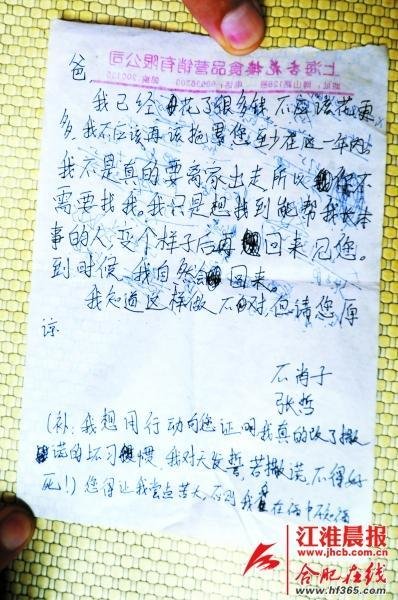 上海杏花楼食品营销有限公司
爸
我已经花了很多钱不应该花更
多,我不应该再该拖累您,至少在这一年内。
我不是真的要离家出走所以你不
需要找我。我只是想找到能帮我长本
事的人,变个样子后再回来见您。
到时候,我自然会回来。
我知道这样做不对,但请您原
谅
不肖子
张哲
(补:我想用行动向您证明我真的改了撒
谎的坏习惯,我对天发誓,若撒谎,不得好
死!)您得让我尝点苦头,否则我在福中不知福
江淮晨报
www.jhcb.com.cn
合肥在线
www.hf365.com